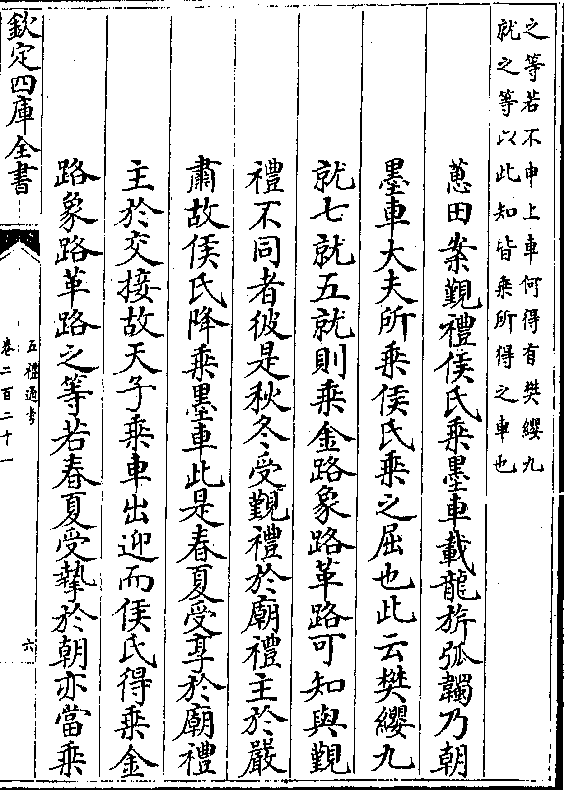 之等若不申上車何得有樊纓九
就之等以此知皆乘所得之車也
蕙田案覲禮侯氏乘墨車載龍旂弧韣乃朝
墨車大夫所乘侯氏乘之屈也此云樊纓九
就七就五就則乘金路象路革路可知與覲
禮不同者彼是秋冬受覲禮於廟禮主於嚴
肅故侯氏降乘墨車此是春夏受享於廟禮
主於交接故天子乘車出迎而侯氏得乘金
路象路革路之等若春夏受摯於朝亦當乘
欽定四庫全書
五禮通考
卷二百二十一
六